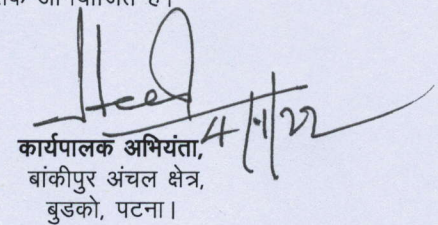 है।
4/1/22
कार्यपालक अभियंता,
बांकीपुर अंचल क्षेत्र,
बुडको, पटना।